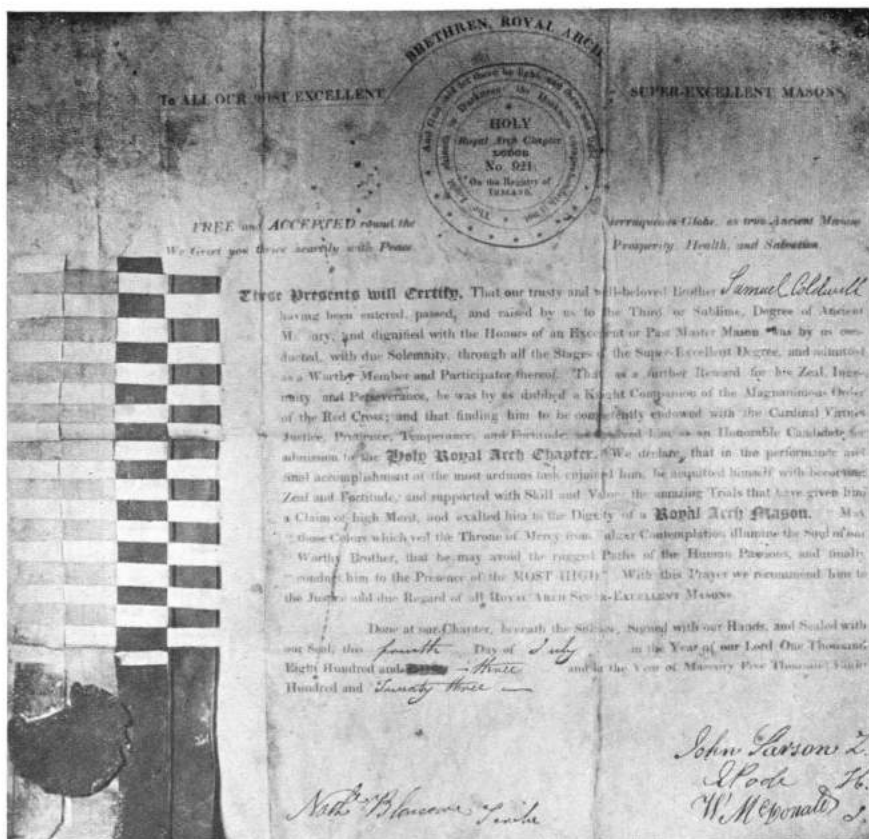 BRETHREN, ROYAL ARCH
To ALL OUR MOST EXCELLENT SUPER-EXCELLENT MASONS,
And God said let there be light, and there was light
The Light shineth in Darkness & the Darkness comprehendeth it not
HOLY
Royal Arch Chapter
LODGE
No. 921.
On the Registry of
ENGLAND.
FREE and ACCEPTED round the Terraqueous Globe, as true Ancient Masons
We Greet you thrice heartily with Peace, Prosperity, Health, and Salvation
These Presents will Certify, That our trusty and well-beloved Brother Samuel Coldwell
having been entered, passed, and raised by us to the Third or Sublime, Degree of Ancient
Masonry, and dignified with the Honors of an Excellent or Past Master Mason was by us con-
ducted, with due Solemnity, through all the Stages of the Super-Excellent Degree, and admitted
as a Worthy Member and Participator thereof. That as a further Reward for his Zeal, Inge-
nuity and Perseverance, he was by us dubbed a Knight Companion of the Magnanimous Order
of the Red Cross; and that finding him to be competently endowed with the Cardinal Virtues
Justice, Prudence, Temperance, and Fortitude, received him as an Honorable Candidate for
admission to the Holy Royal Arch Chapter. We declare, that in the performance and
final accomplishment of the most arduous task enjoined him, he acquitted himself with becoming
Zeal and Fortitude, and supported with Skill and Valour the amazing Trials that have given him
a Claim of high Merit, and exalted him to the Dignity of a Royal Arch Mason. " May
" those Colors which veil the Throne of Mercy from Contemplation illumine the Soul of our
" Worthy Brother, that he may avoid the rugged Paths of the Human Passions, and finally
" conduct him to the Presence of the MOST HIGH". With this Prayer we recommend him to
the Justice and due Regard of all ROYAL ARCH SUPER-EXCELLENT MASONS.
Done at our Chapter, beneath the Signed with our Hands, and Sealed with
our Seal, this fourth Day of July in the Year of our Lord One Thousand
Eight Hundred and three and in the Year of Masonry Five Thousand Eight
Hundred and Twenty three
John Z.
H.
W. McDonald J.
Scribe